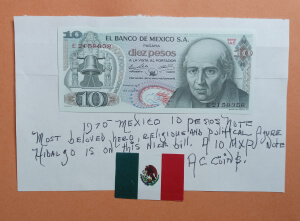 10
EL BANCO DE MEXICO S.A.
PAGARA
DIEZ PESOS
A LA VISTA AL PORTADOR
10
1975 - MEXICO 10 PESOS NOTE
"MOST BELOVED HERO, RELIGIOUS AND POLITICAL FIGURE
HIDALGO IS ON THIS NICE BILL. A 10 MXP NOTE
AC COINS.